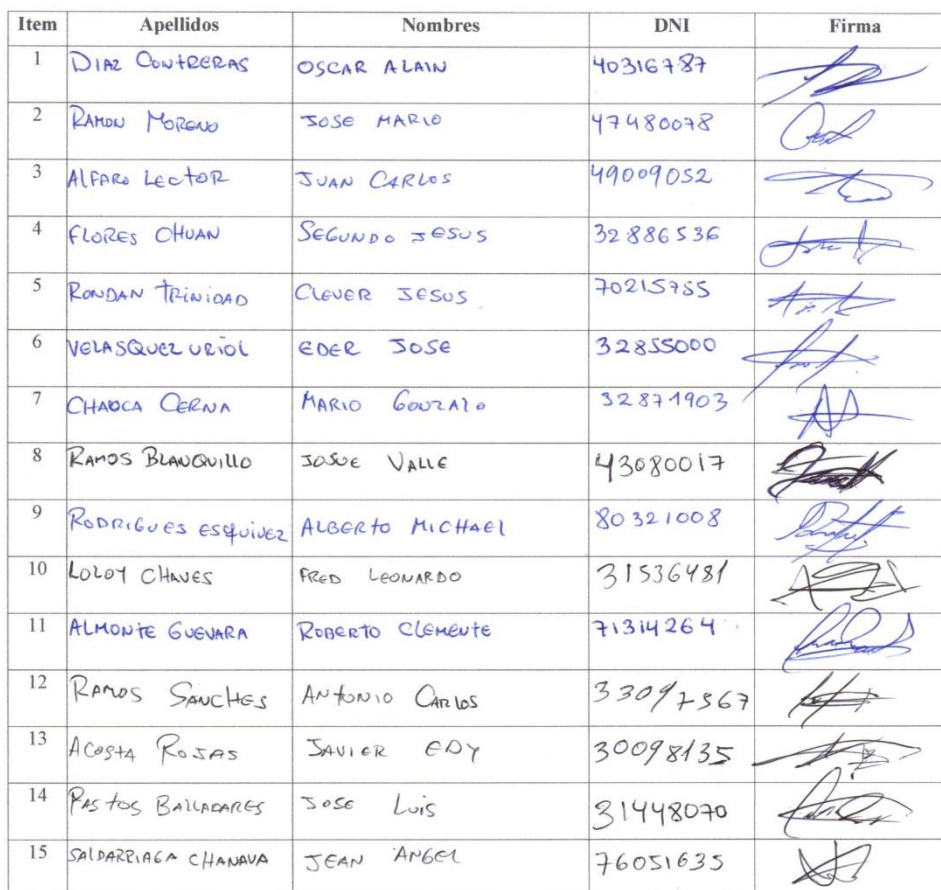 Item Apellidos Nombres DNI Firma
1 DIAZ CONTRERAS OSCAR ALAIN 40316787
2 RAMON MORENO JOSE MARIO 47480078
3 ALFARO LECTOR JUAN CARLOS 49009052
4 FLORES CHUAN SEGUNDO JESUS 32886536
5 RONDAN TRINIDAD CLEVER JESUS 70215755
6 VELASQUEZ URIOL EDER JOSE 32855000
7 CERNA MARIO GONZALO 32871903
8 RAMOS BLANQUILLO JOSUE VALLE 43080017
9 RODRIGUES ESQUIVEZ ALBERTO MICHAEL 80321008
10 LOLOY CHAVES FRED LEONARDO 31536481
11 ALMONTE GUEVARA ROBERTO CLEMENTE 71314264
12 RAMOS SANCHES ANTONIO CARLOS 33097367
13 ACOSTA ROJAS JAVIER EDY 30098135
14 BALLADARES JOSE LUIS 31448070
15 SALDARRIAGA CHANAVA JEAN ANGEL 76051635